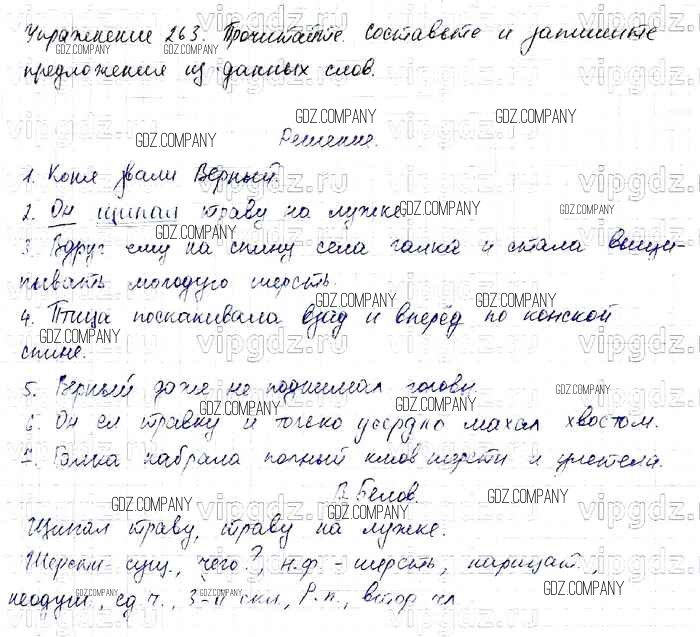 Упражнение 263. Прочитайте. составьте и запишите
предложения из данных слов.
Решение.
1. Коня звали Верный.
2. Он щипал траву на лужке.
3. Вдруг ему на спину села галка и стала выщи-
пывать молодую шерсть.
4. Птица поскакивала взад и вперёд по конской
спине.
5. Верный даже не поднимал голову.
6. Он ел травку и только усердно махал хвостом.
7. Галка набрала полный клюв шерсти и улетела.
В. Белов.
Щипал траву, траву на лужке.
Шерсти - сущ., чего?, н.ф. - шерсть, нарицат.,
неодуш., ед.ч., 3-й скл., Р.п., втор. чл.